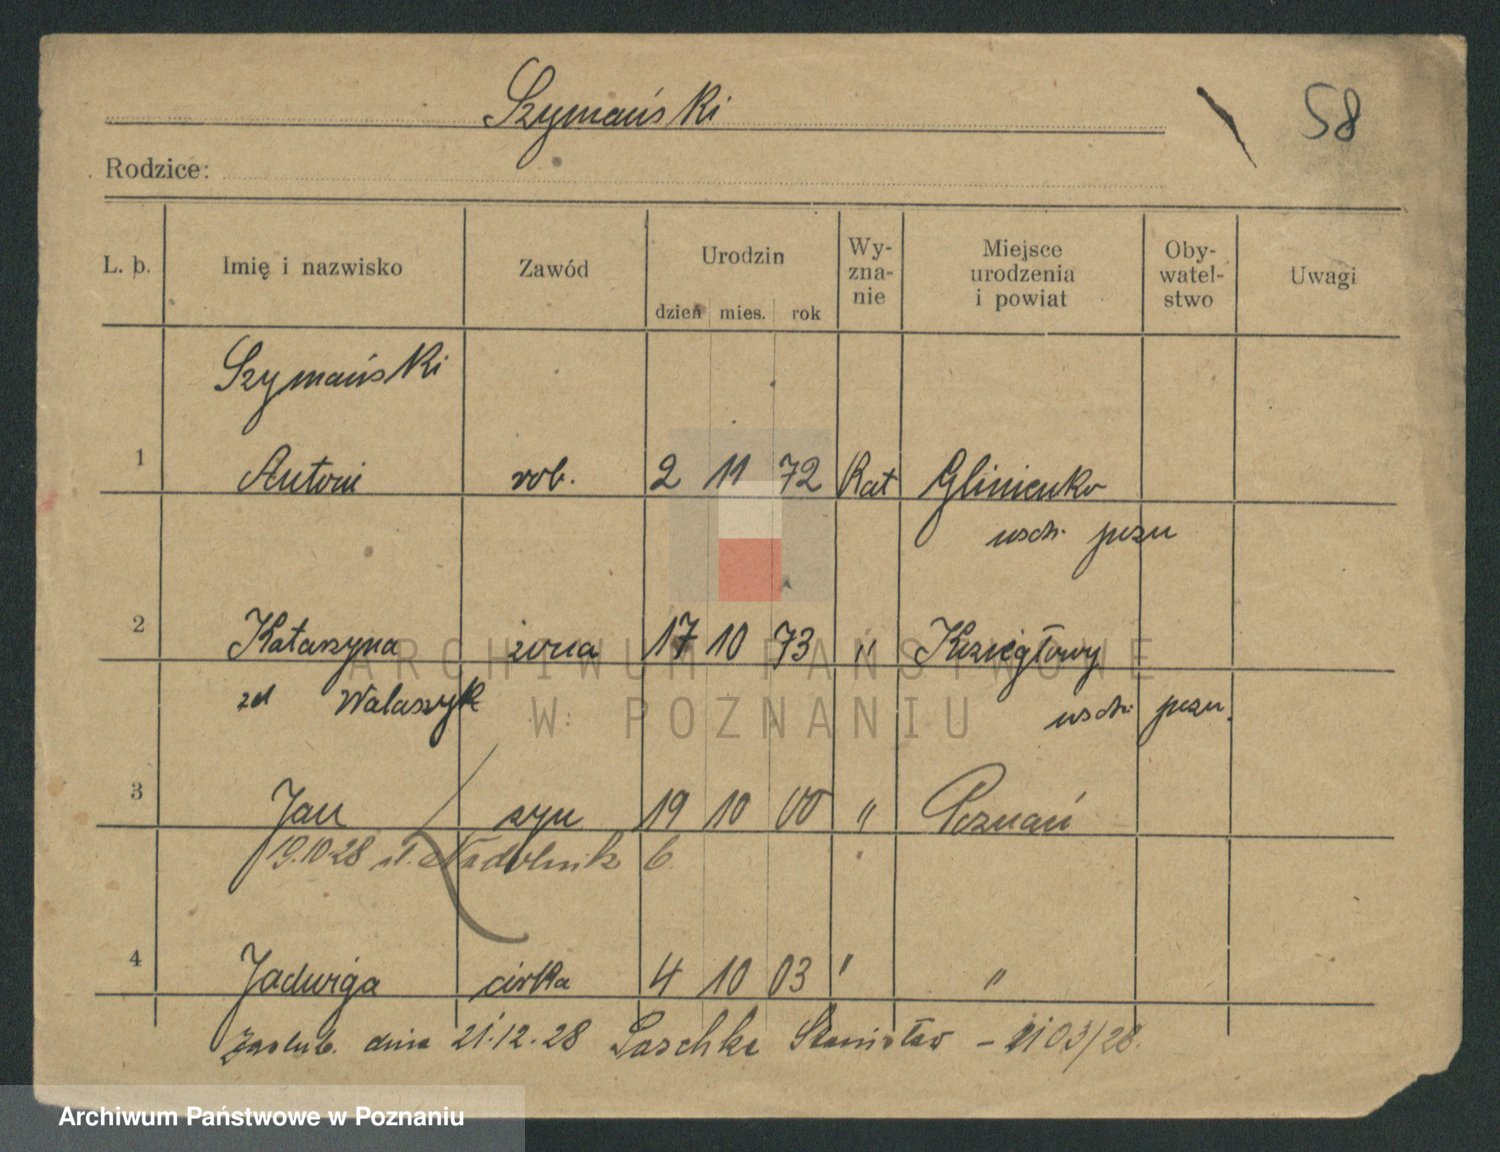 Szymański
58
Rodzice:
L. b. Imię i nazwisko Zawód Urodzin dzień mies. rok Wy-zna-nie Miejsce urodzenia i powiat Oby-watel-stwo Uwagi
Szymański
1 Antoni rob. 2 11 72 Kat Glinienko
wsch. pozn
2 Katarzyna żona 17 10 73 " Kziegłowy
zd Walaszyk wsch. pozn.
3 Jan syn 19 10 00 " Poznań
19.10.28 Nadolnik 6
4 Jadwiga córka 4 10 03 " "
Zaślub. dnia 21.12.28 Laschke Stanisław 03/28.
ARCHIWUM PAŃSTWOWE
W POZNANIU
Archiwum Państwowe w Poznaniu